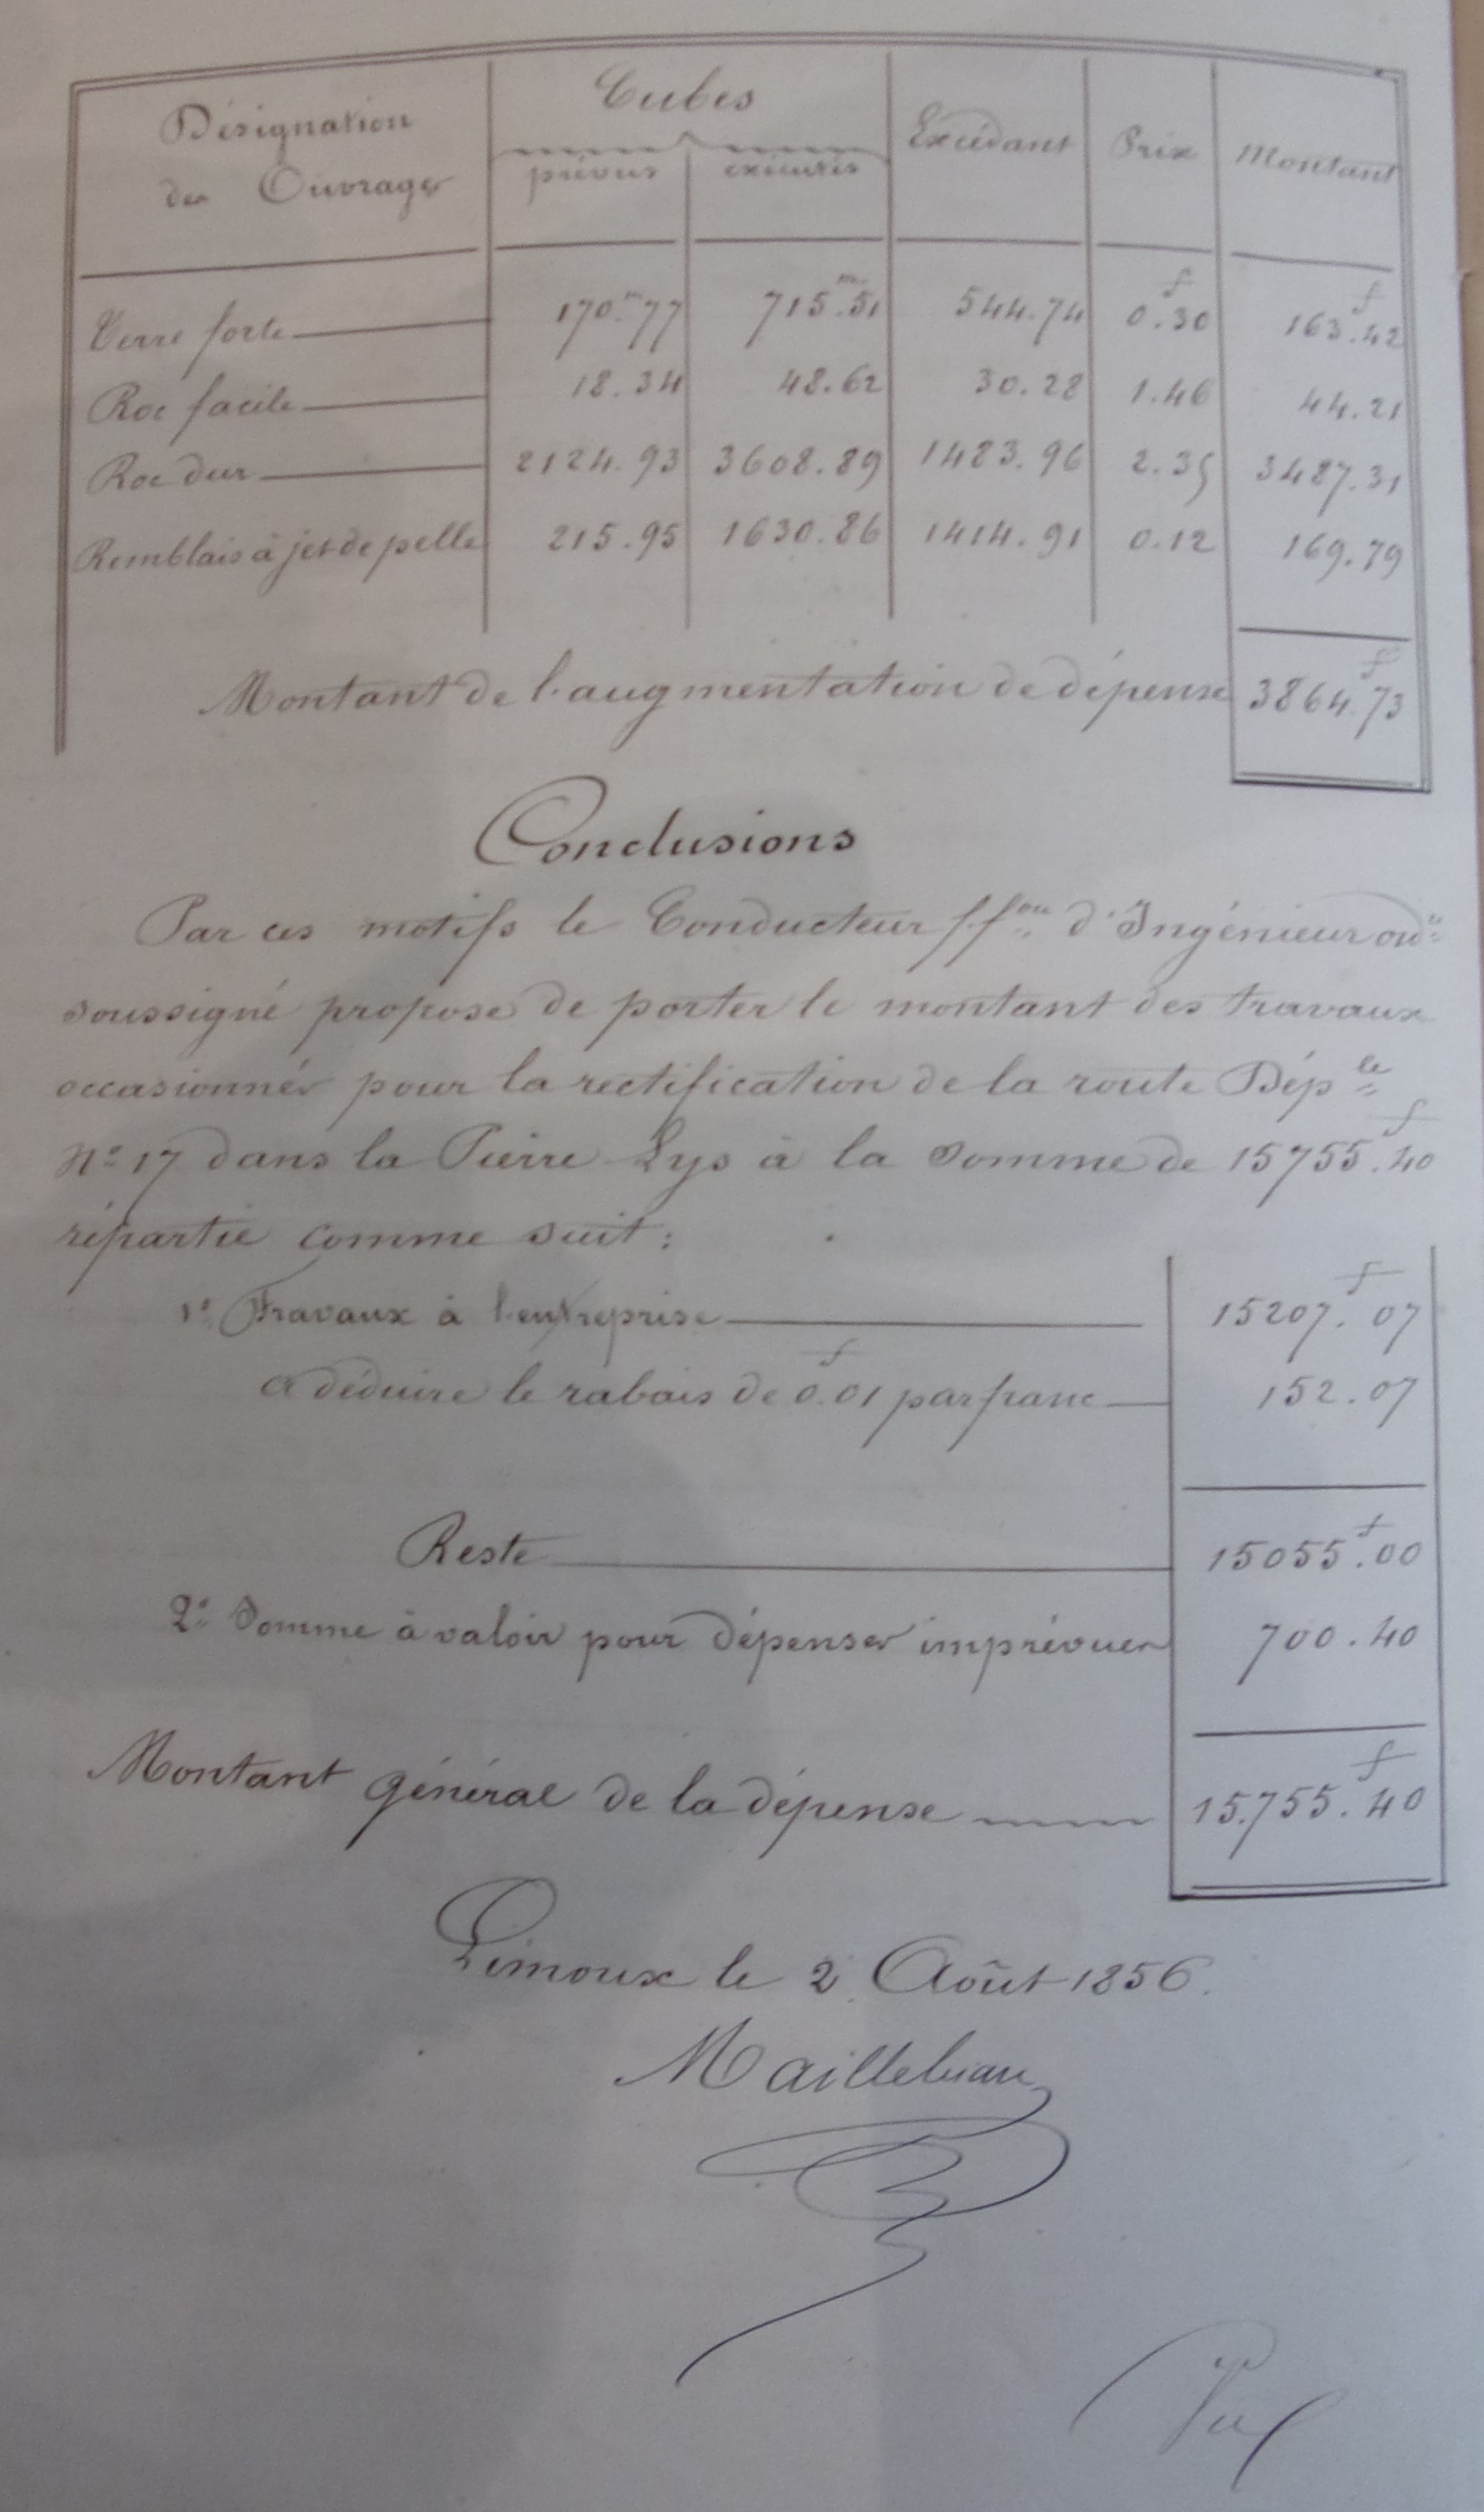 Désignation des Ouvrages | Cubes prévus | Cubes exécutés | Excédant | Prix | Montant
Terre forte | 170.m77 | 715.m51 | 544.74 | 0.f30 | 163.f42
Roc facile | 18.34 | 48.62 | 30.28 | 1.46 | 44.21
Roc dur | 2124.93 | 3608.89 | 1483.96 | 2.35 | 3487.31
Remblais à jet de pelle | 215.95 | 1630.86 | 1414.91 | 0.12 | 169.79
Montant de l'augmentation de dépense 3864.f73
Conclusions
Par ces motifs le Conducteur ff.on d'Ingénieur ord.re
soussigné propose de porter le montant des travaux
occasionnés pour la rectification de la route Dép.le
N° 17 dans la Pierre Lys à la somme de 15755.f40
répartie comme suit :
1° Travaux à l'entreprise 15207.f07
à déduire le rabais de 0.f01 par franc 152.07
Reste 15055.f00
2° Somme à valoir pour dépenses imprévues 700.40
Montant général de la dépense 15.755.f40
Limoux le 2 Août 1856.
Maillebiau